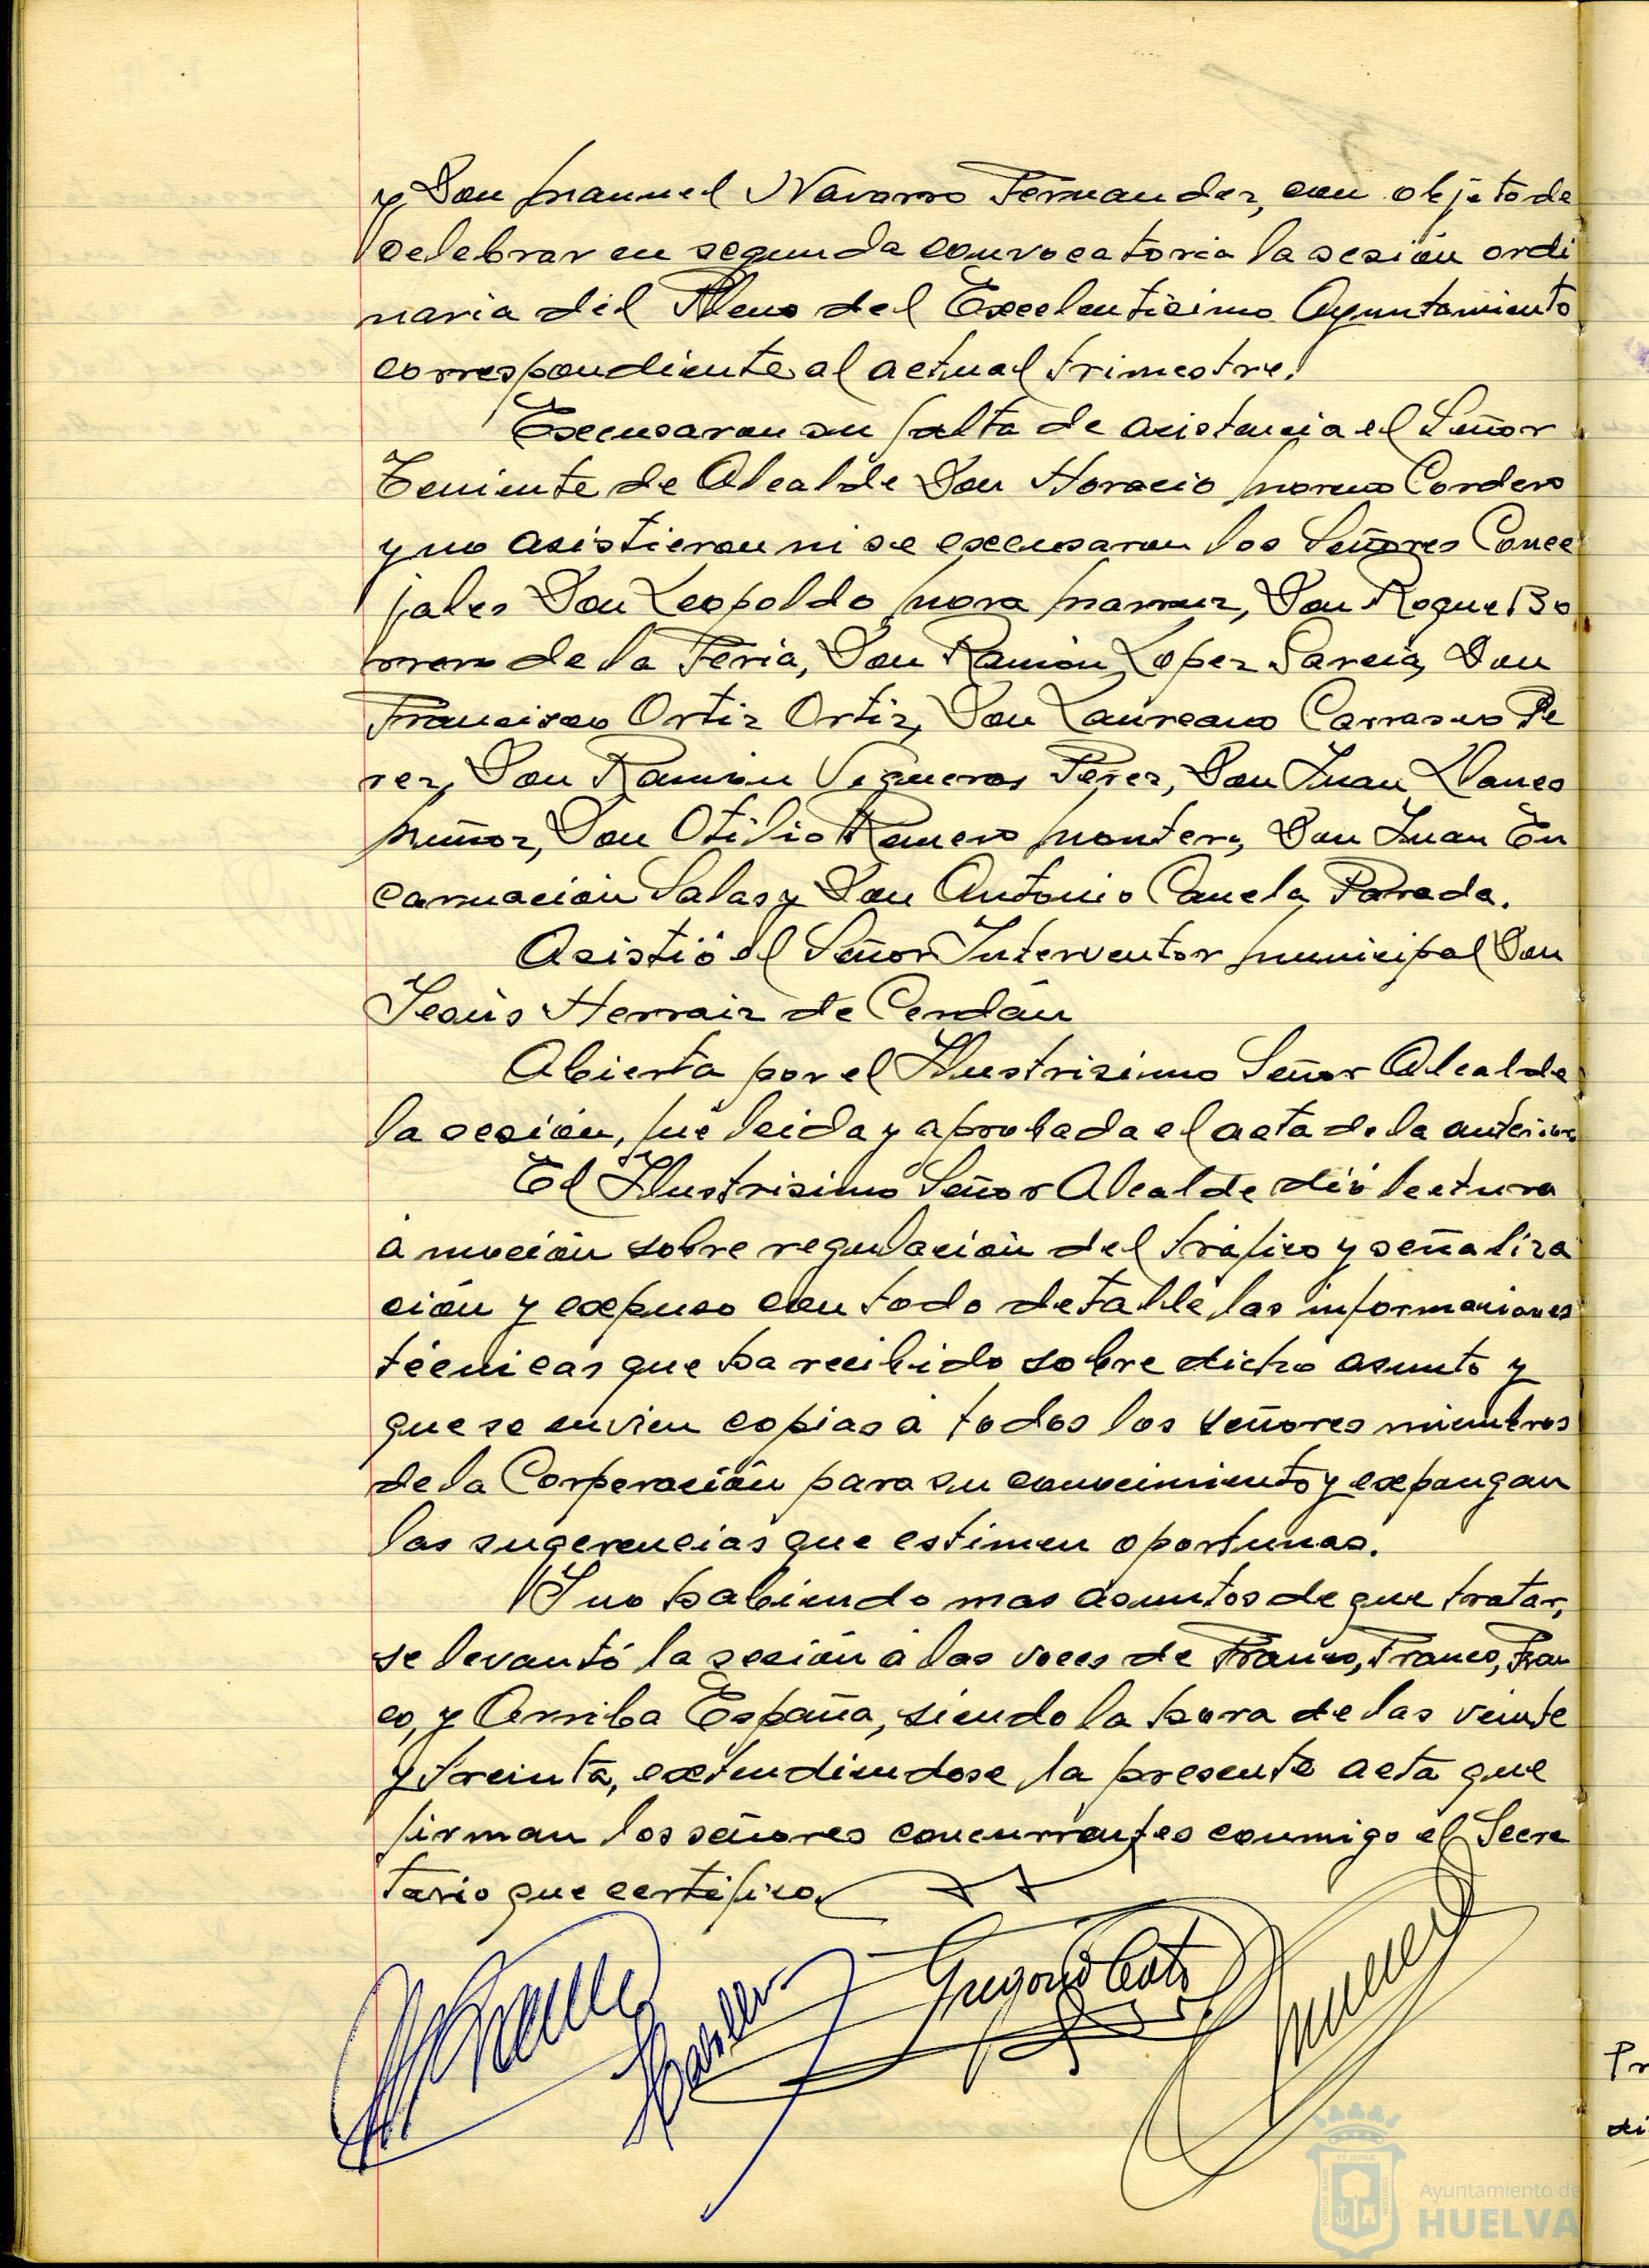 y Don Manuel Navarro Fernandez, con objeto de
celebrar en segunda convocatoria la sesión ordi
naria del Pleno del Excelentisimo Ayuntamiento
correspondiente al actual trimestre.
Excusaron su falta de asistencia el Señor
Teniente de Alcalde Don Horacio Moreno Cordero
y no asistieron ni se excusaron los Señores Conce
jales Don Leopoldo Mora Don Roque Bo
rrero de la Feria, Don Ramón Lopez García, Don
Francisco Ortiz Ortiz, Don Laureano Carrasco Pe
rez, Don Ramón Vigueras Pérez, Don Juan Llanes
Muñoz, Don Otilio Romero Montero, Don Juan En
carnación Salas y Don Antonio Canela Parada.
Asistió el Señor Interventor Municipal Don
Jesús Herraiz de Cerdán
Abierta por el Ilustrisimo Señor Alcalde
la sesión, fué leida y aprobada el acta de la anterior
El Ilustrisimo Señor Alcalde dió lectura
a moción sobre regulación del tráfico y señaliza
ción y expuso con todo detalle las informaciones
técnicas que ha recibido sobre dicho asunto y
que se envien copias a todos los señores miembros
de la Corporación para su conocimiento y expongan
las sugerencias que estimen oportunas.
Y no habiendo mas asuntos de que tratar,
se levantó la sesión a las voces de Franco, Franco, Fran
co, y Arriba España, siendo la hora de las veinte
y treinta, extendiendose la presente acta que
firman los señores concurrentes conmigo el Secre
tario que certifico.
Gregorio
Pr
di
Ayuntamiento de
HUELVA